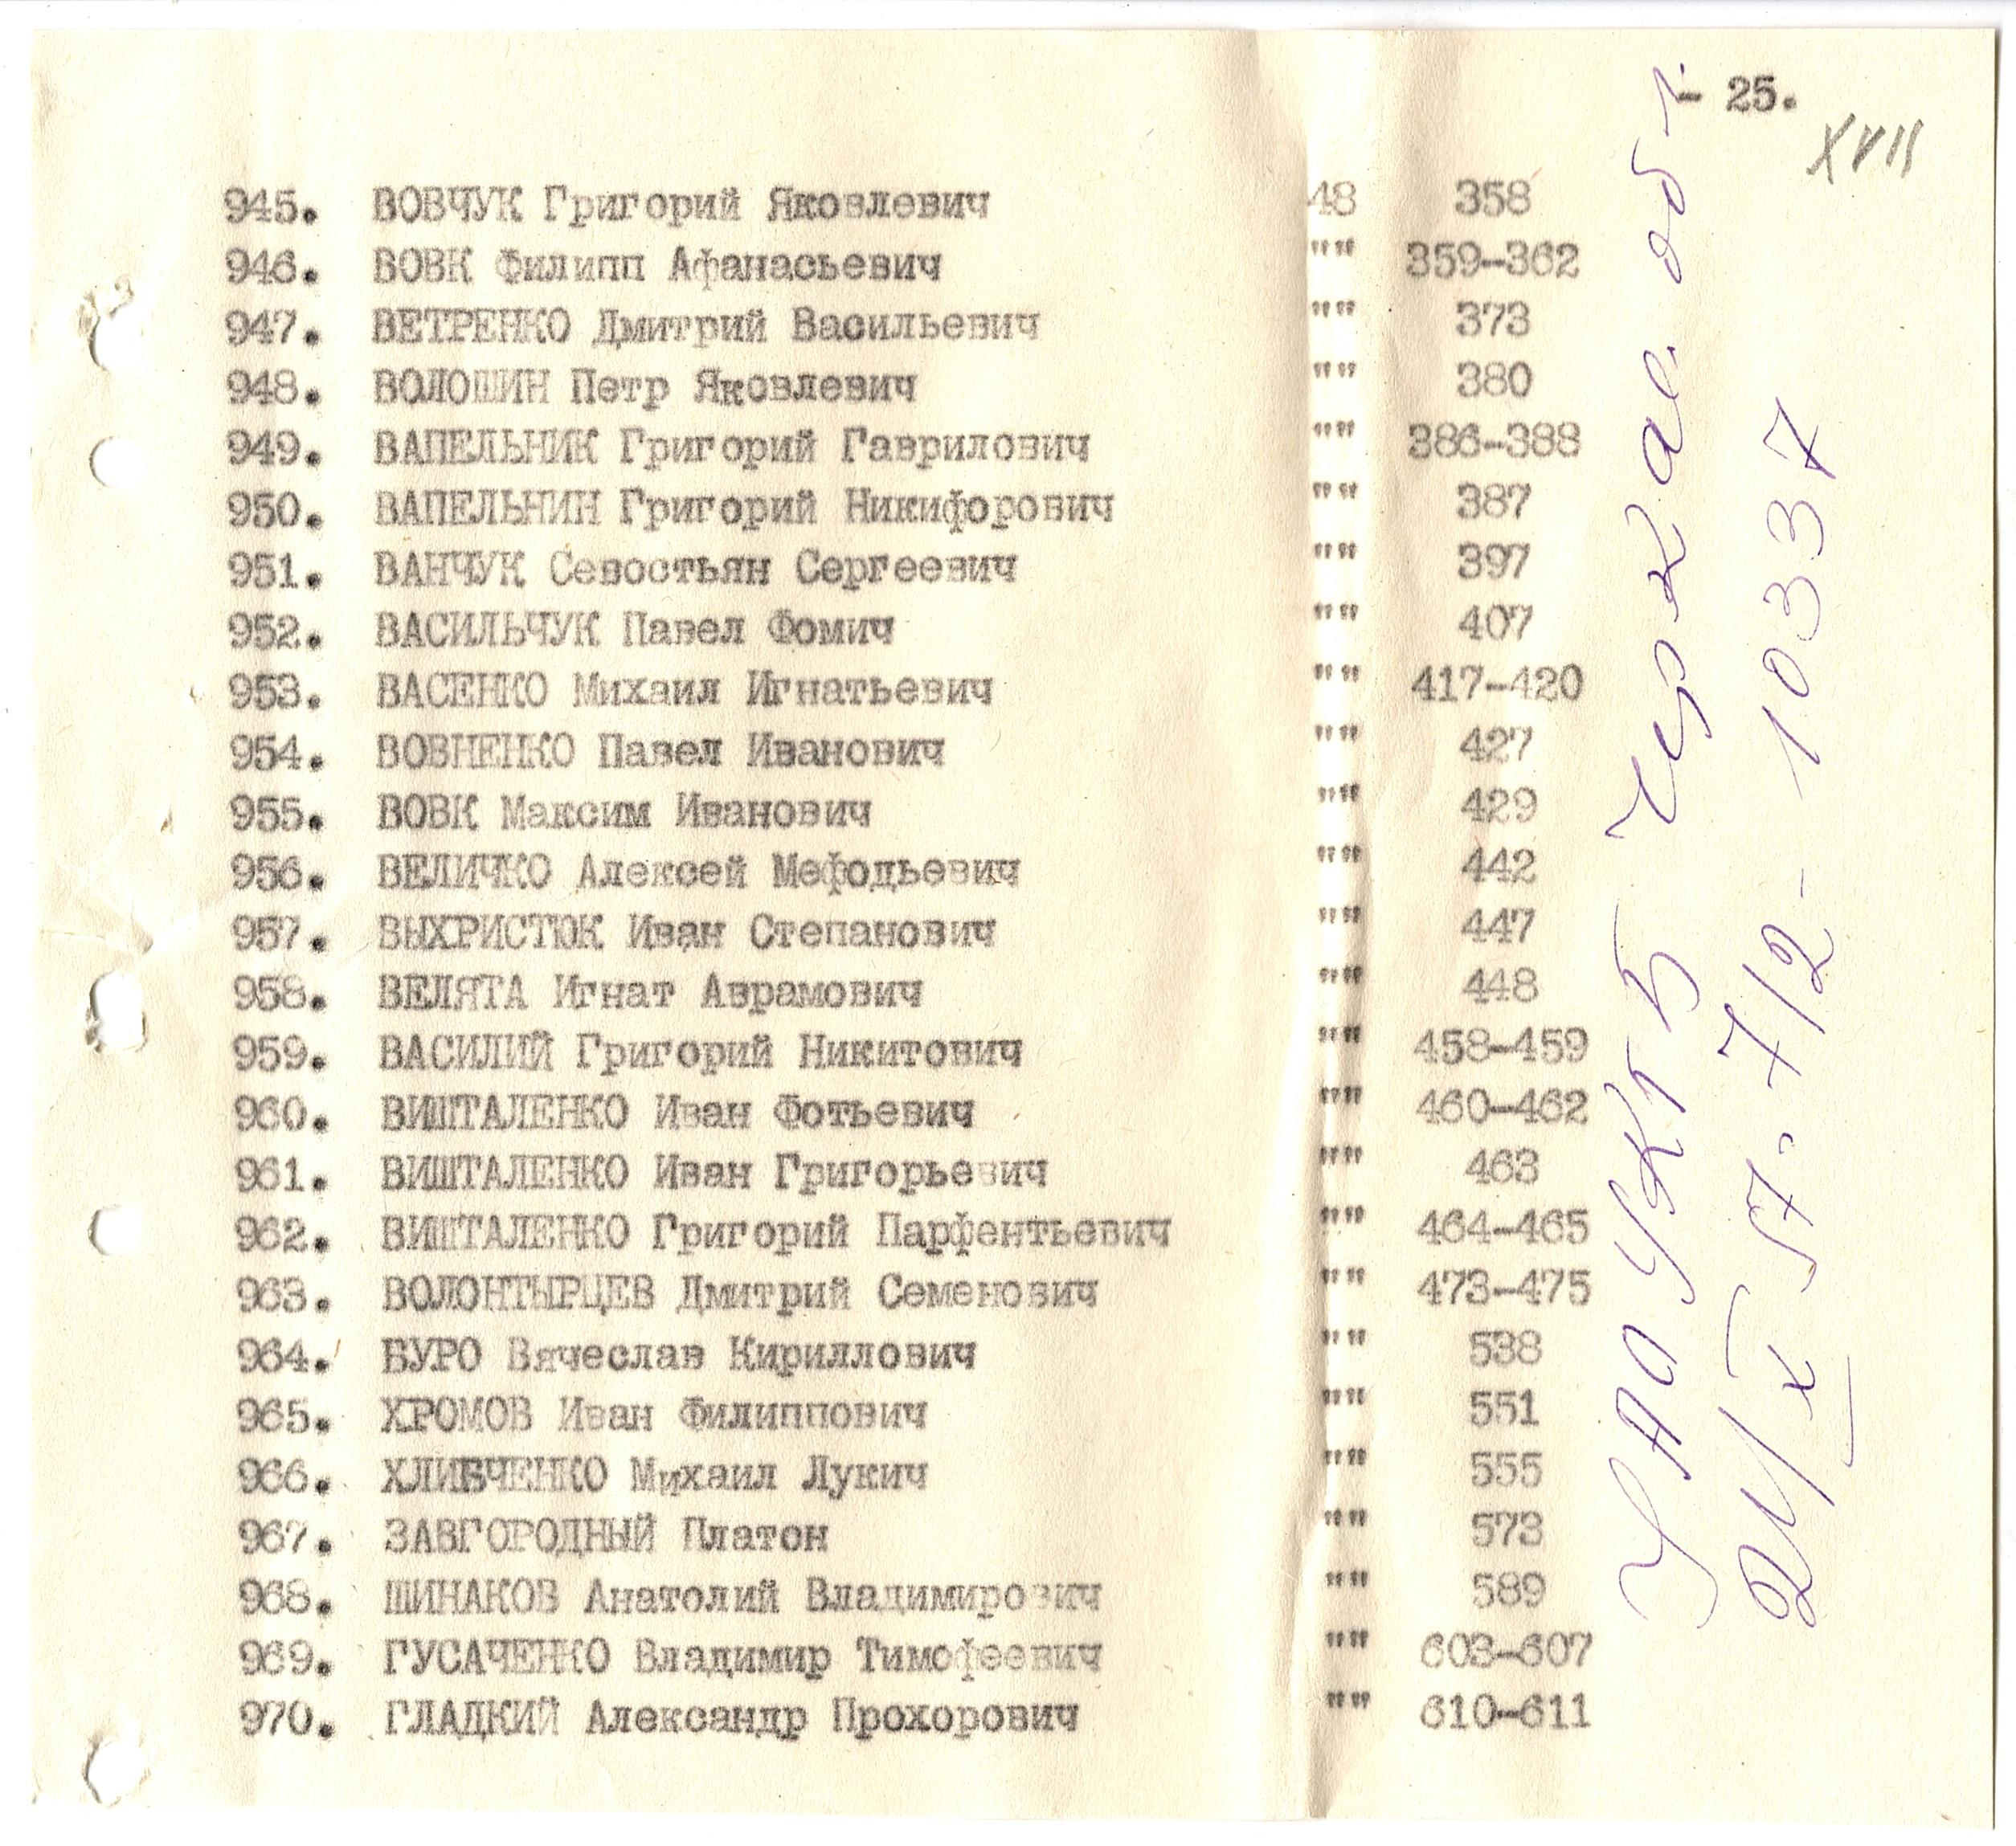 - 25.
XVII
945. ВОВЧУК Григорий Яковлевич 48 358
946. ВОВК Филипп Афанасьевич "" 359-362
947. ВЕТРЕНКО Дмитрий Васильевич "" 373
948. ВОЛОШИН Петр Яковлевич "" 380
949. ВАПЕЛЬНИК Григорий Гаврилович "" 386-388
950. ВАПЕЛЬНИН Григорий Никифорович "" 387
951. ВАНЧУК Севостьян Сергеевич "" 397
952. ВАСИЛЬЧУК Павел Фомич "" 407
953. ВАСЕНКО Михаил Игнатьевич "" 417-420
954. ВОВНЕНКО Павел Иванович "" 427
955. ВОВК Максим Иванович "" 429
956. ВЕЛИЧКО Алексей Мефодьевич "" 442
957. ВЫХРИСТЮК Иван Степанович "" 447
958. ВЕЛЯТА Игнат Аврамович "" 448
959. ВАСИЛИЙ Григорий Никитович "" 458-459
960. ВИШТАЛЕНКО Иван Фотьевич "" 460-462
961. ВИШТАЛЕНКО Иван Григорьевич "" 463
962. ВИШТАЛЕНКО Григорий Парфентьевич "" 464-465
963. ВОЛОНТЫРЦЕВ Дмитрий Семенович "" 473-475
964. БУРО Вячеслав Кириллович "" 538
965. ХРОМОВ Иван Филиппович "" 551
966. ХЛИБЧЕНКО Михаил Лукич "" 555
967. ЗАВГОРОДНЫЙ Платон "" 573
968. ШИНАКОВ Анатолий Владимирович "" 589
969. ГУСАЧЕНКО Владимир Тимофеевич "" 603-607
970. ГЛАДКИЙ Александр Прохорович "" 610-611
УАО УКГБ Черкас. обл.
21/X 57. 7/2-10337